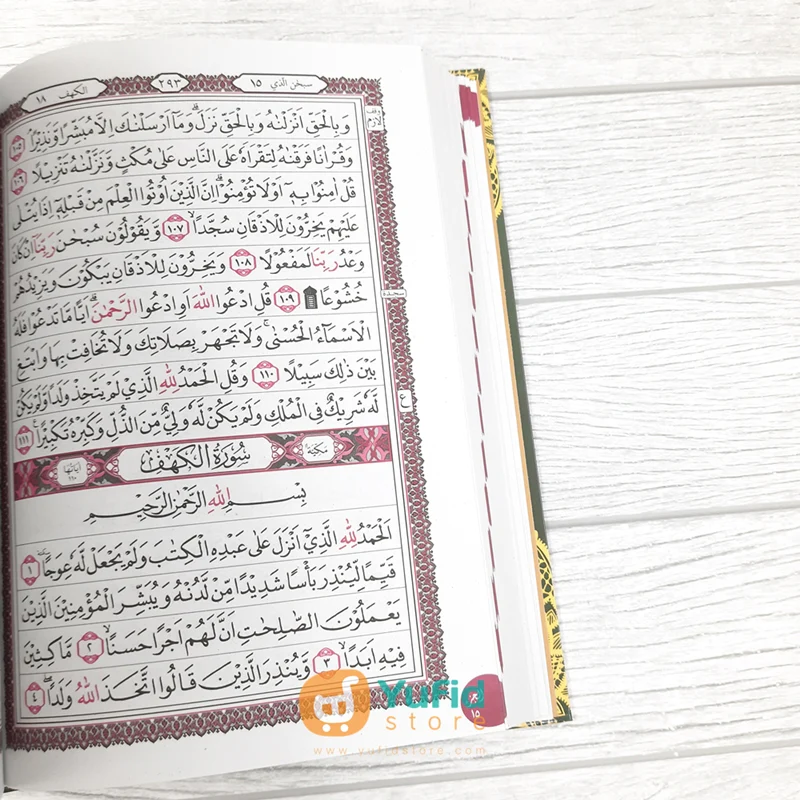 سبحن الذي ١٥
٢٩٣
الكهف ١٨
وقف لازم
وَبِالْحَقِّ اَنْزَلْنٰهُ وَبِالْحَقِّ نَزَلَۗ وَمَآ اَرْسَلْنٰكَ اِلَّا مُبَشِّرًا وَّنَذِيْرًاۘ ١٠٥
وَقُرْاٰنًا فَرَقْنٰهُ لِتَقْرَاَهٗ عَلَى النَّاسِ عَلٰى مُكْثٍ وَّنَزَّلْنٰهُ تَنْزِيْلًا ١٠٦
قُلْ اٰمِنُوْا بِهٖٓ اَوْ لَا تُؤْمِنُوْاۗ اِنَّ الَّذِيْنَ اُوْتُوا الْعِلْمَ مِنْ قَبْلِهٖٓ اِذَا يُتْلٰى
عَلَيْهِمْ يَخِرُّوْنَ لِلْاَذْقَانِ سُجَّدًاۙ ١٠٧ وَّيَقُوْلُوْنَ سُبْحٰنَ رَبِّنَآ اِنْ كَانَ
وَعْدُ رَبِّنَا لَمَفْعُوْلًا ١٠٨ وَيَخِرُّوْنَ لِلْاَذْقَانِ يَبْكُوْنَ وَيَزِيْدُهُمْ
سجده
خُشُوْعًا ۩ ١٠٩ قُلِ ادْعُوا اللّٰهَ اَوِ ادْعُوا الرَّحْمٰنَۗ اَيًّا مَّا تَدْعُوْا فَلَهُ
الْاَسْمَاۤءُ الْحُسْنٰىۚ وَلَا تَجْهَرْ بِصَلَاتِكَ وَلَا تُخَافِتْ بِهَا وَابْتَغِ
بَيْنَ ذٰلِكَ سَبِيْلًا ١١٠ وَقُلِ الْحَمْدُ لِلّٰهِ الَّذِيْ لَمْ يَتَّخِذْ وَلَدًا وَّلَمْ يَكُنْ
ع
لَّهٗ شَرِيْكٌ فِى الْمُلْكِ وَلَمْ يَكُنْ لَّهٗ وَلِيٌّ مِّنَ الذُّلِّ وَكَبِّرْهُ تَكْبِيْرًا ١١١
مكية
سُوْرَةُ الْكَهْفِ
اٰياتها ١١٠
بِسْمِ اللّٰهِ الرَّحْمٰنِ الرَّحِيْمِ
اَلْحَمْدُ لِلّٰهِ الَّذِيْٓ اَنْزَلَ عَلٰى عَبْدِهِ الْكِتٰبَ وَلَمْ يَجْعَلْ لَّهٗ عِوَجًا ١
قَيِّمًا لِّيُنْذِرَ بَأْسًا شَدِيْدًا مِّنْ لَّدُنْهُ وَيُبَشِّرَ الْمُؤْمِنِيْنَ الَّذِيْنَ
يَعْمَلُوْنَ الصّٰلِحٰتِ اَنَّ لَهُمْ اَجْرًا حَسَنًاۙ ٢ مَّاكِثِيْنَ
فِيْهِ اَبَدًاۙ ٣ وَّيُنْذِرَ الَّذِيْنَ قَالُوا اتَّخَذَ اللّٰهُ وَلَدًاۖ ٤
١٥
Yufid
store
www.yufidstore.com